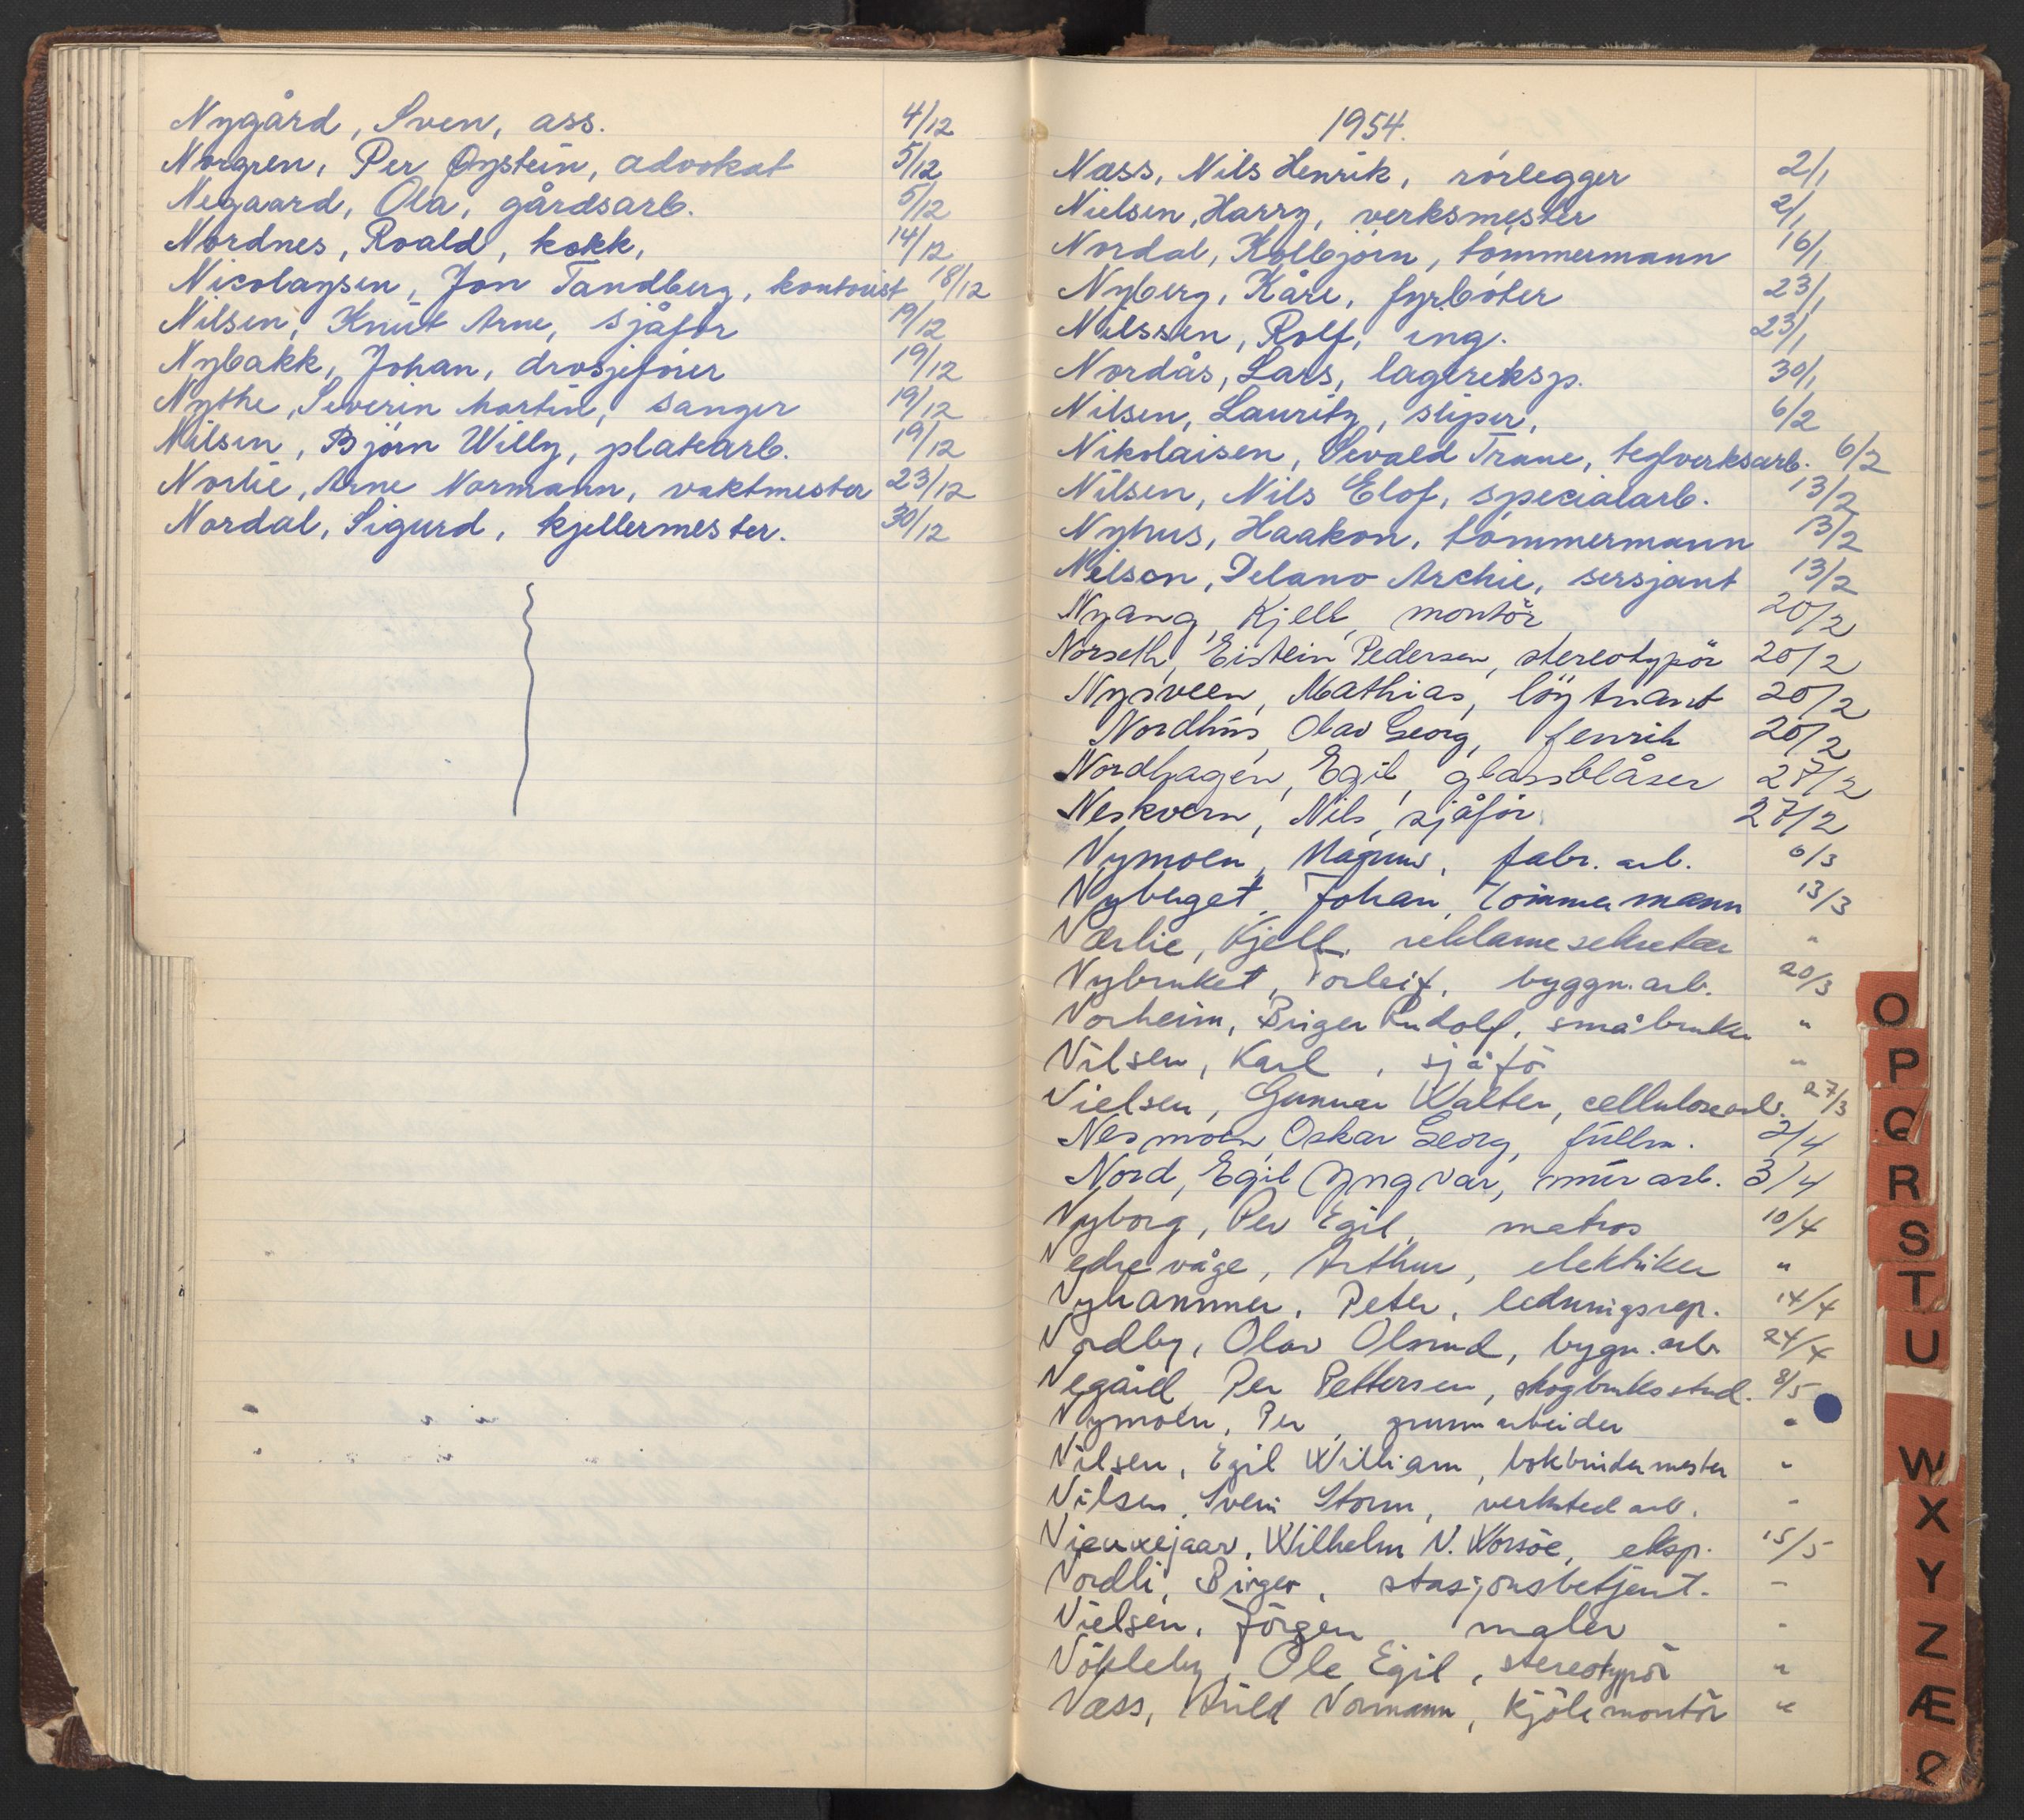 Nygård, Sven, ass. 4/12
Norgren, Per Øystein, advokat 5/12
Negaard, Ola, gårdsarb. 5/12
Nordnes, Roald, kokk, 14/12
Nicolaysen, Jon Tandberg, kontorist 18/12
Nilsen, Knut Arne, sjåför 19/12
Nybakk, Johan, drosjeförer 19/12
Nythe, Severin Martin, sanger 19/12
Nilsen, Björn Willy, platearb. 19/12
Norlie, Arne Normann, vaktmester 23/12
Nordal, Sigurd, kjellermester. 30/12
1954.
Næss, Nils Henrik, rörlegger 2/1
Nielsen, Harry, verksmester 2/1
Nordal, Kolbjörn, tömmermann 16/1
Nyberg, Kåre, fyrböter 23/1
Nilssen, Rolf, ing. 23/1
Nordås, Lars, lagereksp. 30/1
Nilsen, Lauritz, sliper, 6/2
Nikolaisen, Sevald Trane, teglverksarb. 6/2
Nilsen, Nils Elof, specialarb. 13/2
Nyhus, Haakon, tömmermann 13/2
Nelson, Delano Archie, sersjant 13/2
Nyang, Kjell, montör 20/2
Norseth, Eistein Pedersen, stereotypör 20/2
Nysveen, Mathias, löytnant 20/2
Nordhus, Olav Georg, fenrik 20/2
Nordhagen, Egil, glassblåser 27/2
Neskvern, Nils, sjåför 27/2
Nymoen, Magnus, fabr. arb. 6/3
Nyberget, Johan, Tömmermann 13/3
Nærlie, Kjell, reklamesekretær "
Nybruket, Torleif, byggn. arb. 20/3
Norheim, Birger Rudolf, småbruker "
Nilsen, Karl, sjåför "
Nielsen, Gunnar Walter, cellulosearb. 27/3
Nesmoen, Oskar Georg, fullm. 2/4
Nord, Egil Yngvar, murarb. 3/4
Nyborg, Per Egil, matros 10/4
Nedrevåge, Arthur, elektriker "
Nyhammer, Peter, ledningsrep. 14/4
Nordby, Olav Olsrud, bygn. arb. 24/4
Negård, Per Pettersen, skogbruksstud. 8/5
Nymoen, Per, grunnarbeider "
Nilsen, Egil William, bokbindermester "
Nilsen, Svein Storm, verksted arb. "
Nieuwejaar, Wilhelm N. Worsöe, eksp. 15/5
Nordli, Birger, stasjonsbetjent. "
Nielsen, Jörgen maler "
Nökleby, Ole Egil, stereotypör "
Næss, Arild Normann, Kjölemontör "
O
P
Q
R
S
T
U
W
X
Y
Z
Æ
Ø